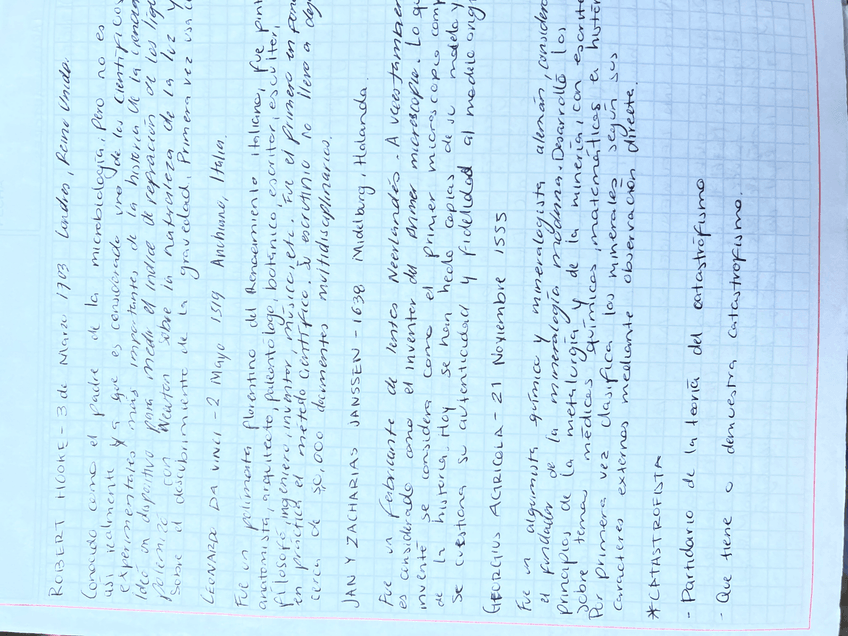 ROBERT HOOKE - 3 de Marzo 1703 Londres, Reino Unido.
Conocido como el padre de la microbiología, pero no es
así realmente ya que es considerado uno de los científicos
experimentales más importantes de la historia de la
Ideó un dispositivo para medir el índice de refracción de los
polemizó con Newton sobre la naturaleza de la luz y
sobre el descubrimiento de la gravedad. Primera vez usa
LEONARDO DA VINCI - 2 Mayo 1519 Anchiano, Italia.
Fue un polimata florentino del Renacimiento italiano, fue
anatomista, arquitecto, paleontólogo, botánico, escritor, escultor,
filósofo, ingeniero, inventor, músico, etc. Fue el primero en
en práctica el método científico. Su escrutinio no llevo a
cerca de 50,000 documentos multidisciplinarios.
JAN Y ZACHARIAS JANSSEN - 1638 Middelburg, Holanda.
Fue un fabricante de lentes Neerlandés. A veces también
es considerado como el inventor del primer microscopio. Lo
inventó se considera como el primer microscopio
de la historia. Hoy se han hecho copias de su modelo y
se cuestiona su autenticidad y fidelidad al modelo
GEORGIUS AGRICOLA - 21 Noviembre 1555
Fue un alquimista, químico y mineralogista alemán,
el fundador de la mineralogía moderna. Desarrolló los
principios de la metalurgia y de la minería, con
sobre temas médicos, químicos, matemáticos e
Por primera vez clasifica los minerales según sus
caracteres externos mediante observación directe.
*CATASTROFISTA
- Partidario de la teoría del catastrófismo
- Que tiene o demuestra catastrofismo.